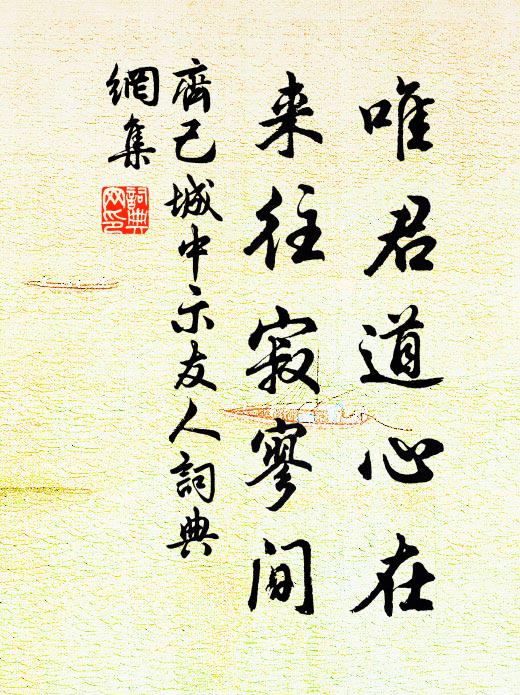 唯君道心在
来往寂寥间
齊己城中示友人詞典
網集
詞典
网印